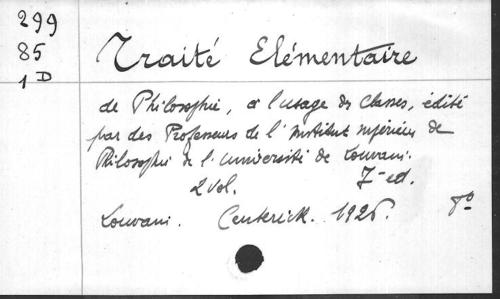 299
85
1 D
Traité Elémentaire
de Philosophie, à l'usage des classes, édité
par des Professeurs de l'Institut supérieur de
Philosophie de l'université de Louvain.
2 vol. 7e ed.
Louvain. Ceuterick. 1926. 8°